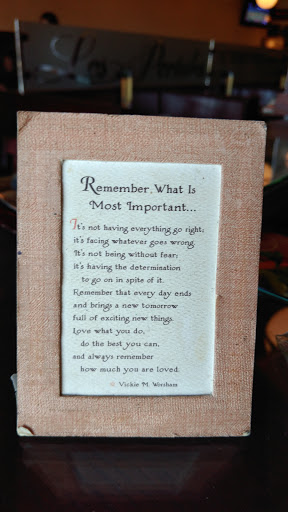 Remember, What Is
Most Important...
It's not having everything go right;
it's facing whatever goes wrong.
It's not being without fear;
it's having the determination
to go on in spite of it.
Remember that every day ends
and brings a new tomorrow
full of exciting new things.
Love what you do,
do the best you can,
and always remember
how much you are loved.
© Vickie M. Worsham